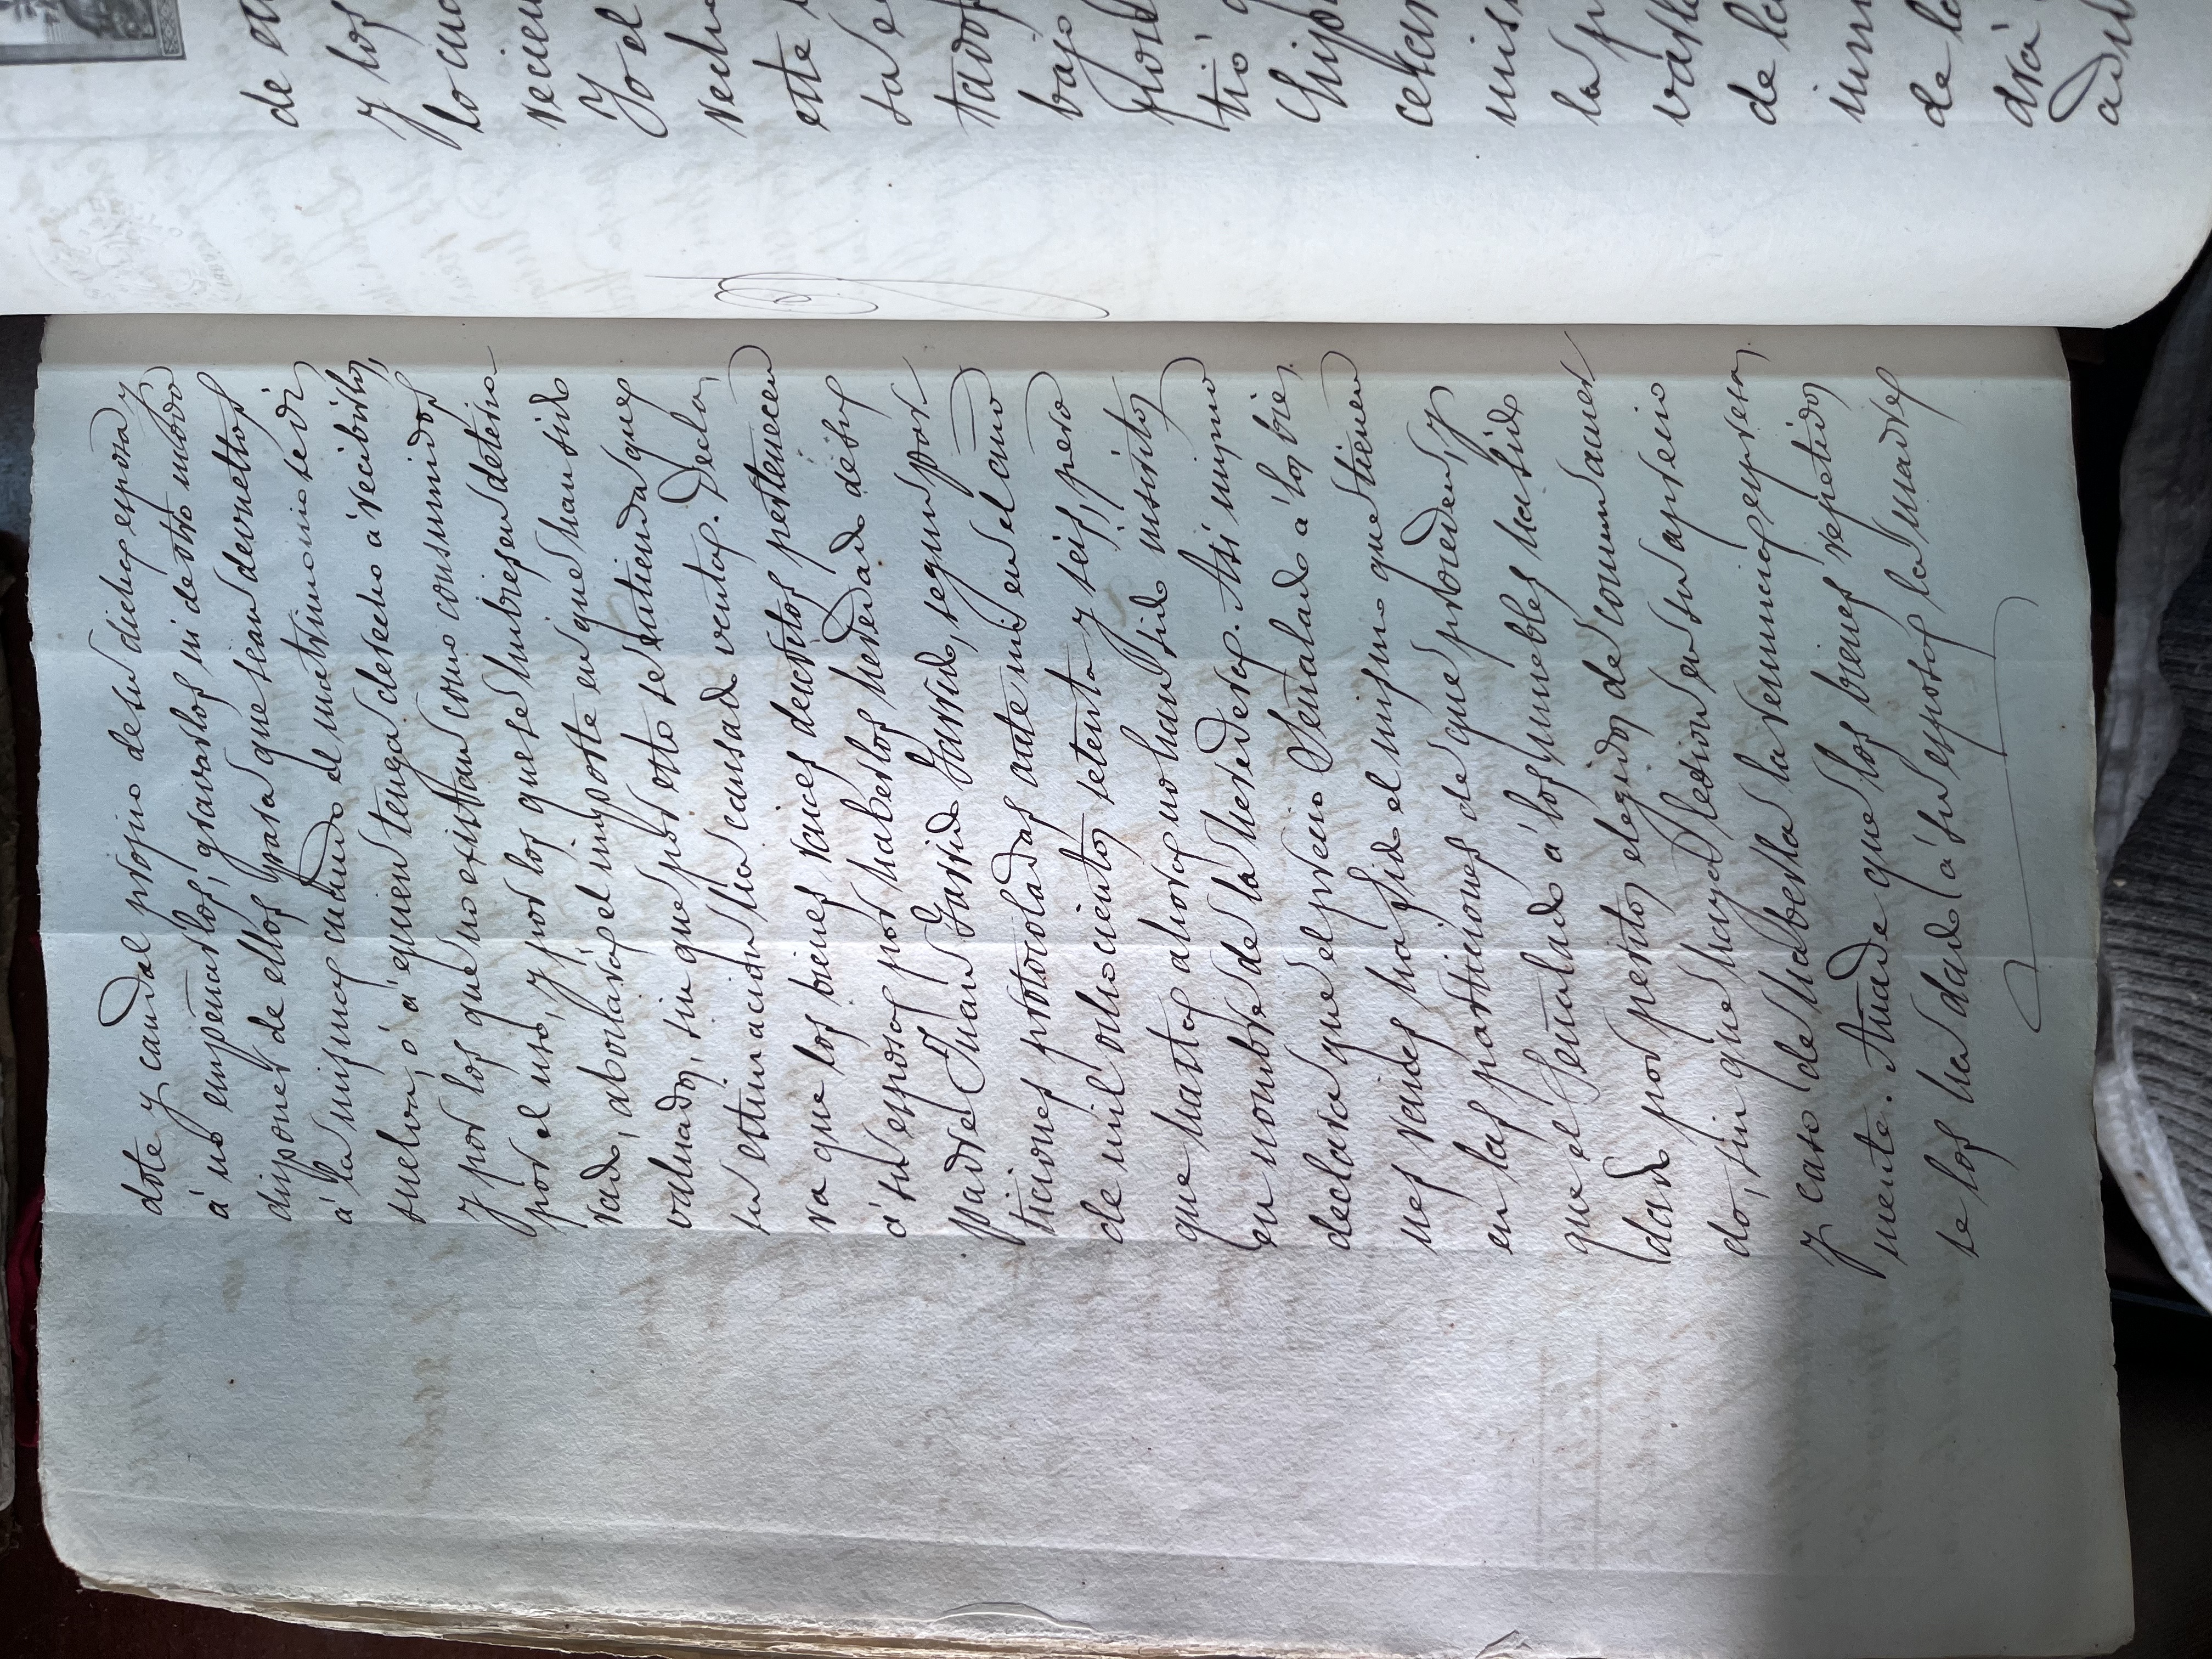 dote y caudal propio de su dicha esposa y
á no empeñarlos, gravarlos ni de otro modo
disponer de ellos para que sean devueltos
á la misma cuando el matrimonio se di
suelva, ó á quien tenga derecho á recibirlos,
y por los que no existan como consumidos
por el uso, y por los que se hubiesen deterio-
rado, abonará el importe en que han sido
valuados, sin que por esto se entienda que
su estimacion ha causado venta. Decla
ra que los bienes raices descritos pertenecen
á su esposa por haberlos heredado de su
padre Juan Garrido Garrido, segun par-
ticiones protocoladas ante mi en el año
de mil ochocientos setenta y seis, pero
que hasta ahora no han sido inscritos
en nombre de la heredera. Asi mismo
declara que el precio señalado á los bie
nes raices ha sido el mismo que tienen
en las particiones de que proceden, y
que el señalado á los muebles ha sido
dado por peritos elegidos de comun acuer
do, sin que haya lesion en su aprecio
y caso de haberla la renuncia expresa
mente. Añade que los bienes repetidos
se los ha dado á su esposa la madre
de
y los
lo cua
recien
Yo el
este
bajo
tió
mis
la
de la
de la
drá